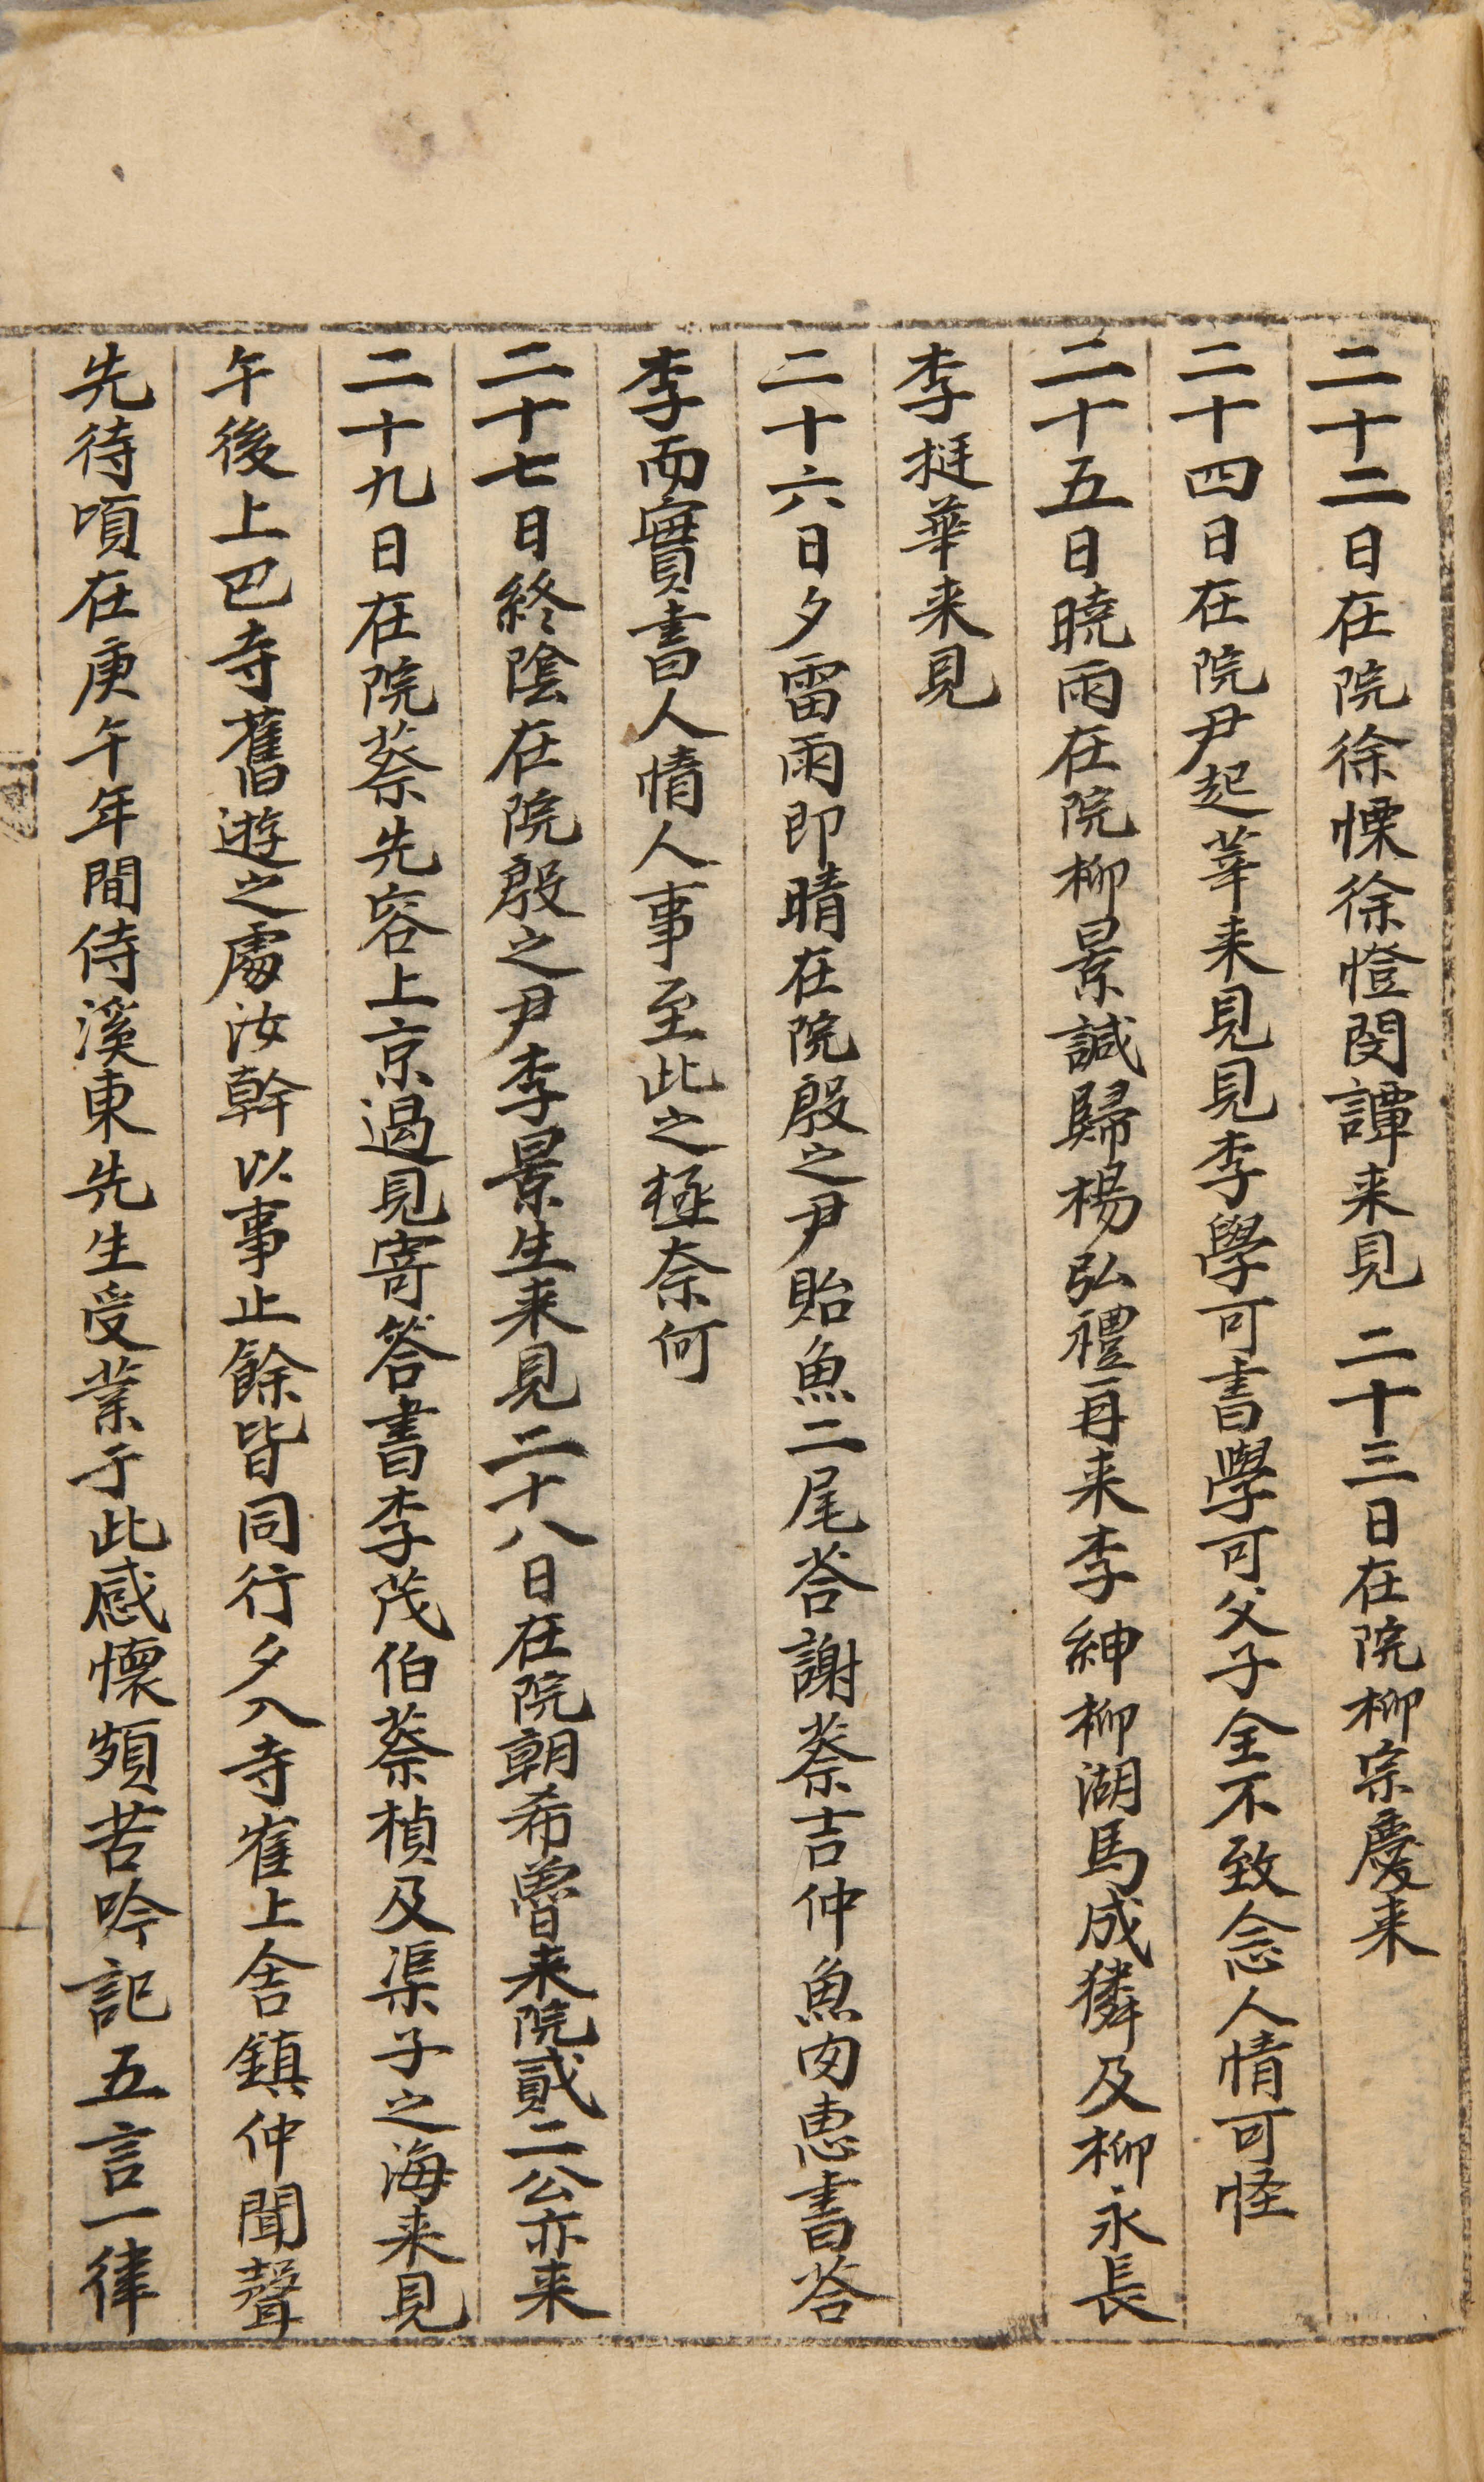 二十二日在院徐慄徐憕閔譚来見 二十三日在院柳宗慶来
二十四日在院尹起莘来見見李學可書學可父子全不致念人情可怪
二十五日曉雨在院柳景諴歸楊弘禮再来李紳柳湖馬成獜及柳永長
李挺華来見
二十六日夕雷雨即晴在院殷之尹貽魚二尾荅謝蔡吉仲魚肉惠書荅
李而實書人情人事至此之極奈何
二十七日終陰在院殷之尹李景生来見二十八日在院朝希魯来院貳二公亦来
二十九日在院蔡先容上京過見寄答書李茂伯蔡楨及渠子之海来見
午後上巴寺舊遊之處汝幹以事止餘皆同行夕入寺崔上舍鎮仲聞聲
先待頃在庚午年間侍溪東先生受業于此感懷頻苦吟記五言一律